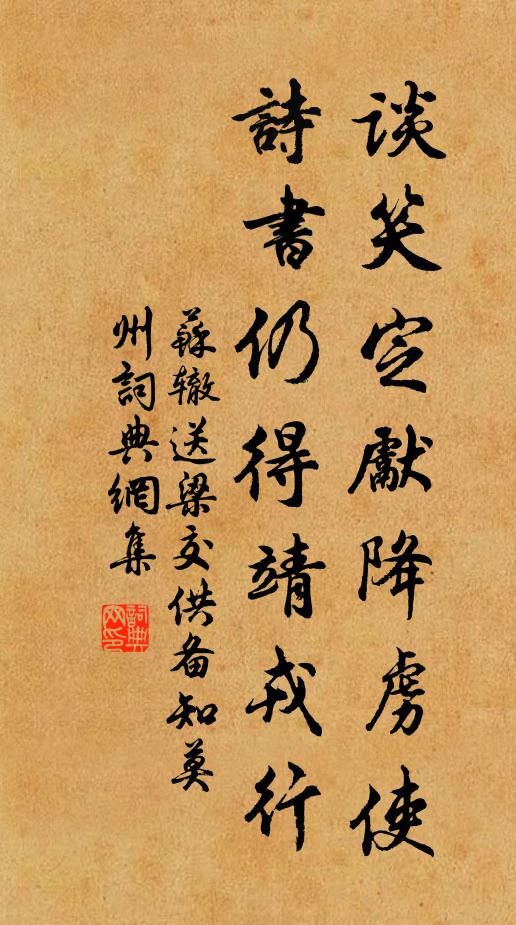 谈笑定獻降虜使
詩書仍得靖戎行
蘇辙送梁交供备知莫
州詞典網集
詞典
网印